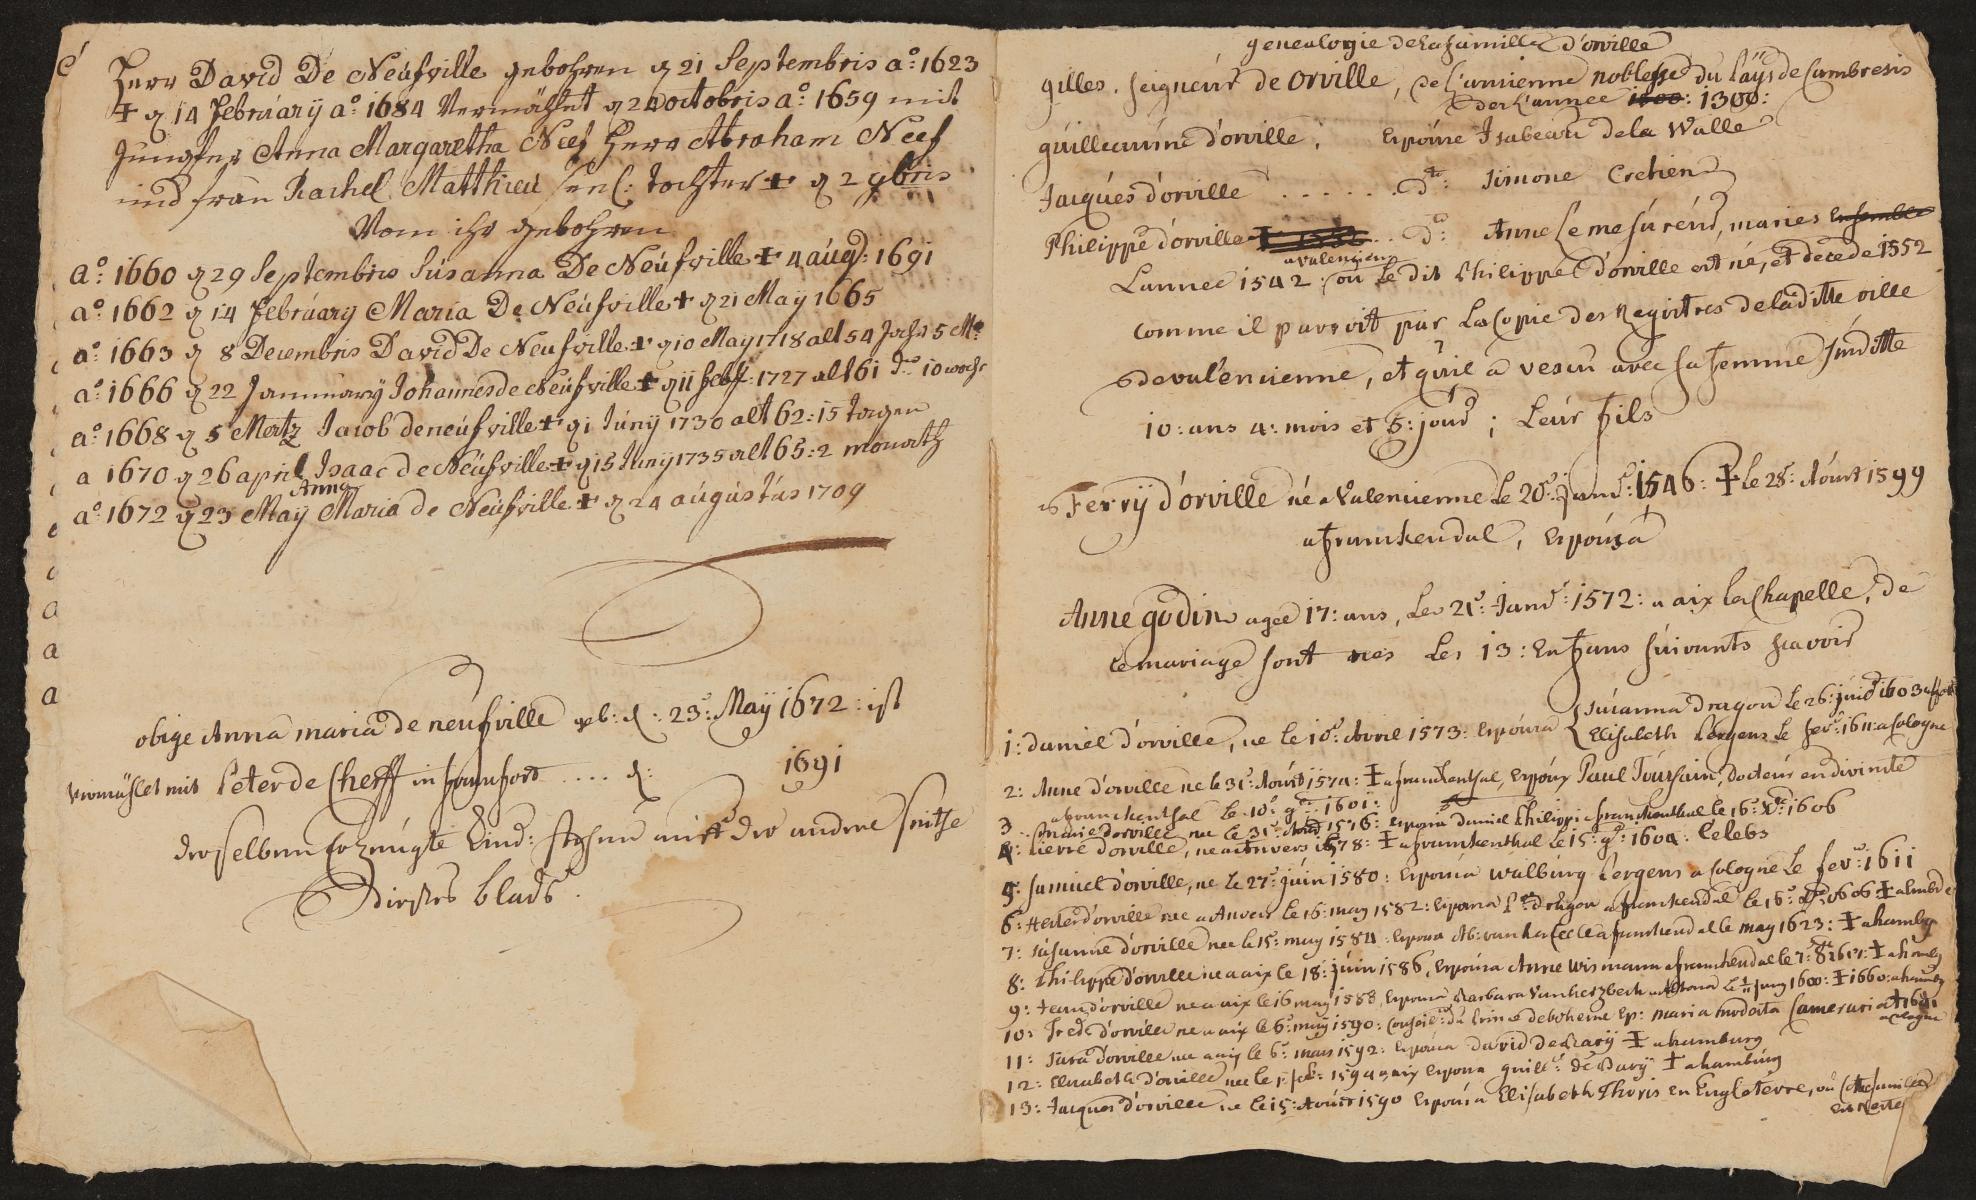 Herr David De Neufville gebohren q 21 Septembris aº: 1623
+ q 14 February aº: 1684 Vermählet q 24 octobris aº: 1659 mit
Jungfer Anna Margaretha Neef Herr Abraham Neef
und fraŭ Rachel Matthieu seel: tochter + q 2 9bris
Von ihr gebohren
aº: 1660 q 29 Septembris Susanna De Neufville + 4 augt: 1691
aº: 1662 q 14 February Maria De Neufville + q 21 Maÿ 1665
aº: 1663 q 8 Decembris David De Neufville + q 10 May 1718 alt 54 Jahr 5 Mº
aº: 1666 q 22 Jannuarÿ Johannes de Neufville + q 11 feb: 1727 alt 61 Jr 10 woche
aº: 1668 q 5 Mertz Jacob de neufville + q 1 Junÿ 1730 alt 62: 15 tagen
a 1670 q 26 april Isaac de Neufville + q 15 Junÿ 1735 alt 65: 2 monath
Anna
aº: 1672 q 23 Maÿ Maria de Neufville + q 24 augustus 1709
obige Anna maria de neufville geb: d: 23: Maÿ 1672: ist
vermählet mit Peter de Cherff in franfort .... d: 1691
derselben erzeugte Kind: stehen auff der andere seitze
dieses blads.
genealogie de la famille d'orville
gilles, seigneur de orville, de l'ansienne noblesse du païs de Cambresis
de l'annee 1300: 1300:
guilleaume d'orville, Epouse Isabeau de la Walle
Jacques d'orville ...... dº: Simone Cretien
Philippe d'orville + 1552 .. dº: Anne Lemesureur, maries Ensemble
a valencien
L'annee 1542: ou le dit Philippe d'orville est né, et decede 1552
comme il paroit par la Copie des Regitres de laditte ville
de valencienne, et qu'il a vescu avec sa femme susditte
10: ans 4: mois et 5: jours; Leur fils
Ferrÿ d'orville né a Valencienne le 20e: Janr: 1546: + le 28: Aoust 1599
a franckendal, Epousa
Anne godin agee 17: ans, Le 21e: Janr: 1572: a aix la Chapelle, De
ce mariage sont nes Les 13: Enfans suivants scavoir
1: daniel d'orville, ne le 10e: Avril 1573: Epousa { susanna Dragon le 26: juin 1603 a
Elisabeth Pergens le fevr: 1611 a Cologne
2: Anne d'orville ne le 31e: Aoust 1574: + a franckenthal, Epoux Paul Toussain, docteur en divinite
a franckenthal le 10e 9e: 1601:
3 marie d'orville nee le 31e: Aoust 1576: epousa daniel Philippi a franckenthal le 16: Xe 1606
4: Pierre d'orville, ne a Anvers 1578: + a franckenthal le 15: 9e: 1604: Celebs
5: samuel d'orville, ne le 27e: juin 1580: epousa walburg Pergens a Cologne le fevr: 1611
6: Hester d'orville nee a Anvers le 16: may 1582: epousa Dragon a franckendal le 16: 1606 +
7: susanne d'orville nee le 15: may 1584: epousa Ab: van a franckendal le may 1623: + a hamburg
8: Philippe d'orville ne a aix le 18: juin 1586, Epousa Anne Wismann a franckendal le 7: 8e 1617: + a hamb
9: Jean d'orville ne a aix le 16 may 1588, Epousa Barbara Vanhetzbeck a Altona le Juny 1600: + 1660: a hamb
10: Fredc d'orville ne a aix le 6e: maÿ 1590: Conseil: du Prince de boheme Ep: maria modesta Camerari
a Cologne
11: Sara d'orville nee a aix le 6e: mars 1592: Epousa David de Barÿ + a hamburg
12: Elisabeth d'orville, nee le 1: feb: 1594 a aix Epousa guill: De Barÿ + a hamburg
13: Jacques d'orville ne le 15: Aoust 1590 Epousa Elisabeth Thoris en Engleterre, ou Cette familie
est Reste